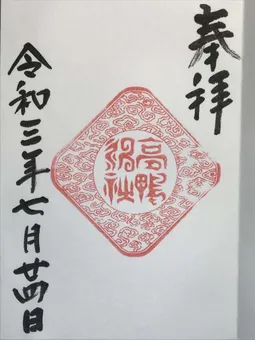 奉拝
高鴨神社
令和三年七月廿四日